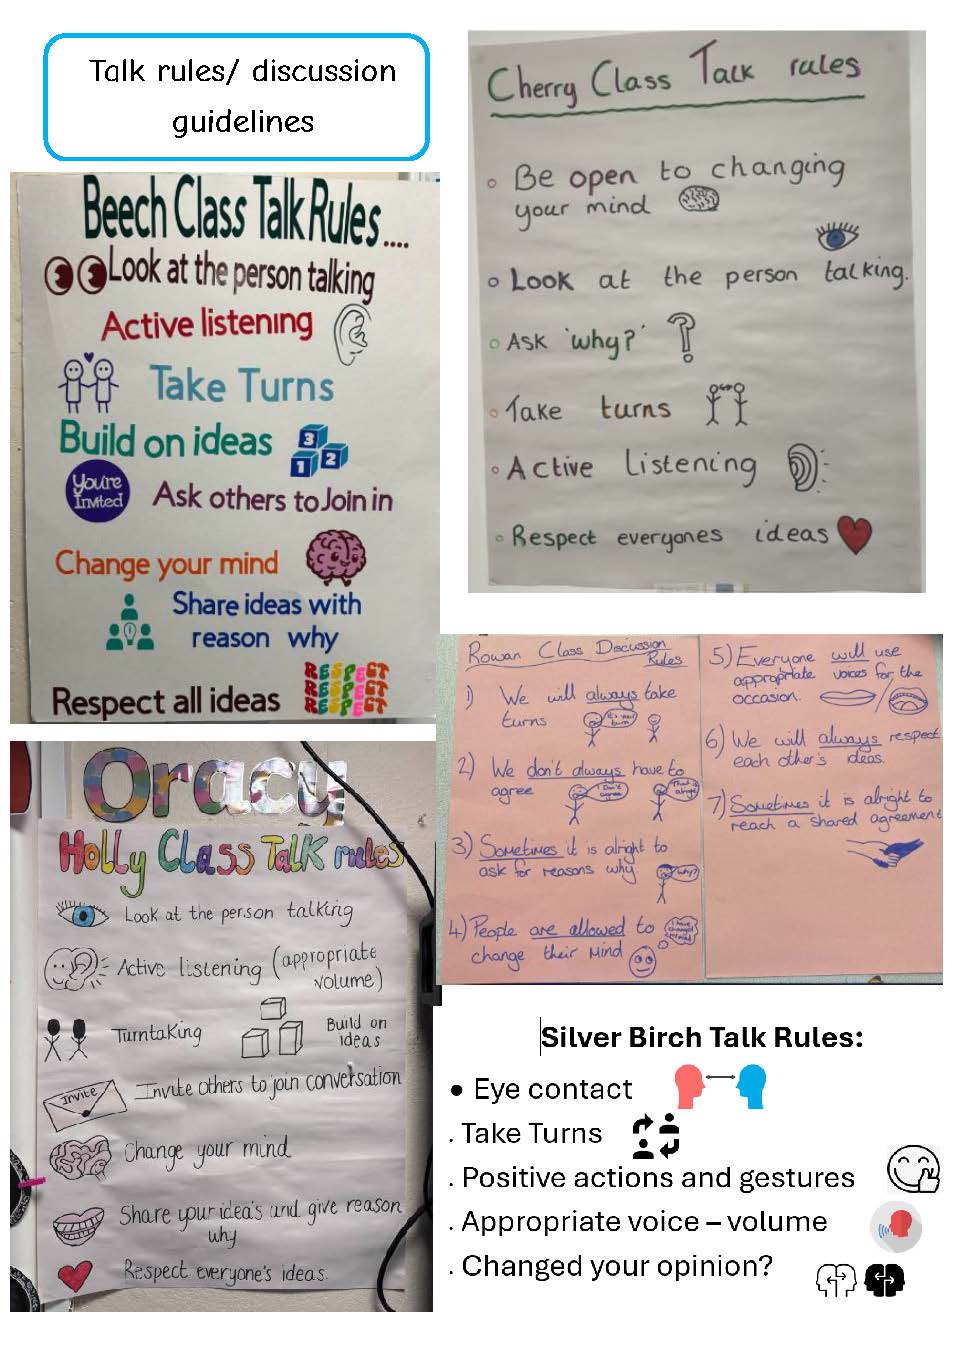 Talk rules/ discussion
guidelines
Beech Class Talk Rules....
Look at the person talking
Active listening
Take Turns
Build on ideas
3
1 2
You're
Invited
Ask others to Join in
Change your mind
Share ideas with
reason why
Respect all ideas
RESPECT
RESPECT
RESPECT
Cherry Class Talk rules
Be open to changing
your mind
Look at the person talking.
Ask 'why?'
Take turns
Active Listening
Respect everyones ideas
Rowan Class Discussion
Rules
1) We will always take
turns
It's your
turn
2) We don't always have to
agree
I Don't
agree
That is
alright
3) Sometimes it is alright to
ask for reasons why.
why?
4) People are allowed to
change their mind
I have
changed
my mind
5) Everyone will use
appropriate voices for the
occasion.
6) We will always respect
each other's ideas.
7) Sometimes it is alright to
reach a shared agreement
Oracy
Holly Class Talk rules
Look at the person talking
Active listening (appropriate
volume)
Turntaking
Build on
ideas
Invite
Invite others to join conversation
Change your mind
Share your idea's and give reason
why
Respect everyone's ideas.
Silver Birch Talk Rules:
• Eye contact
. Take Turns
. Positive actions and gestures
. Appropriate voice – volume
. Changed your opinion?